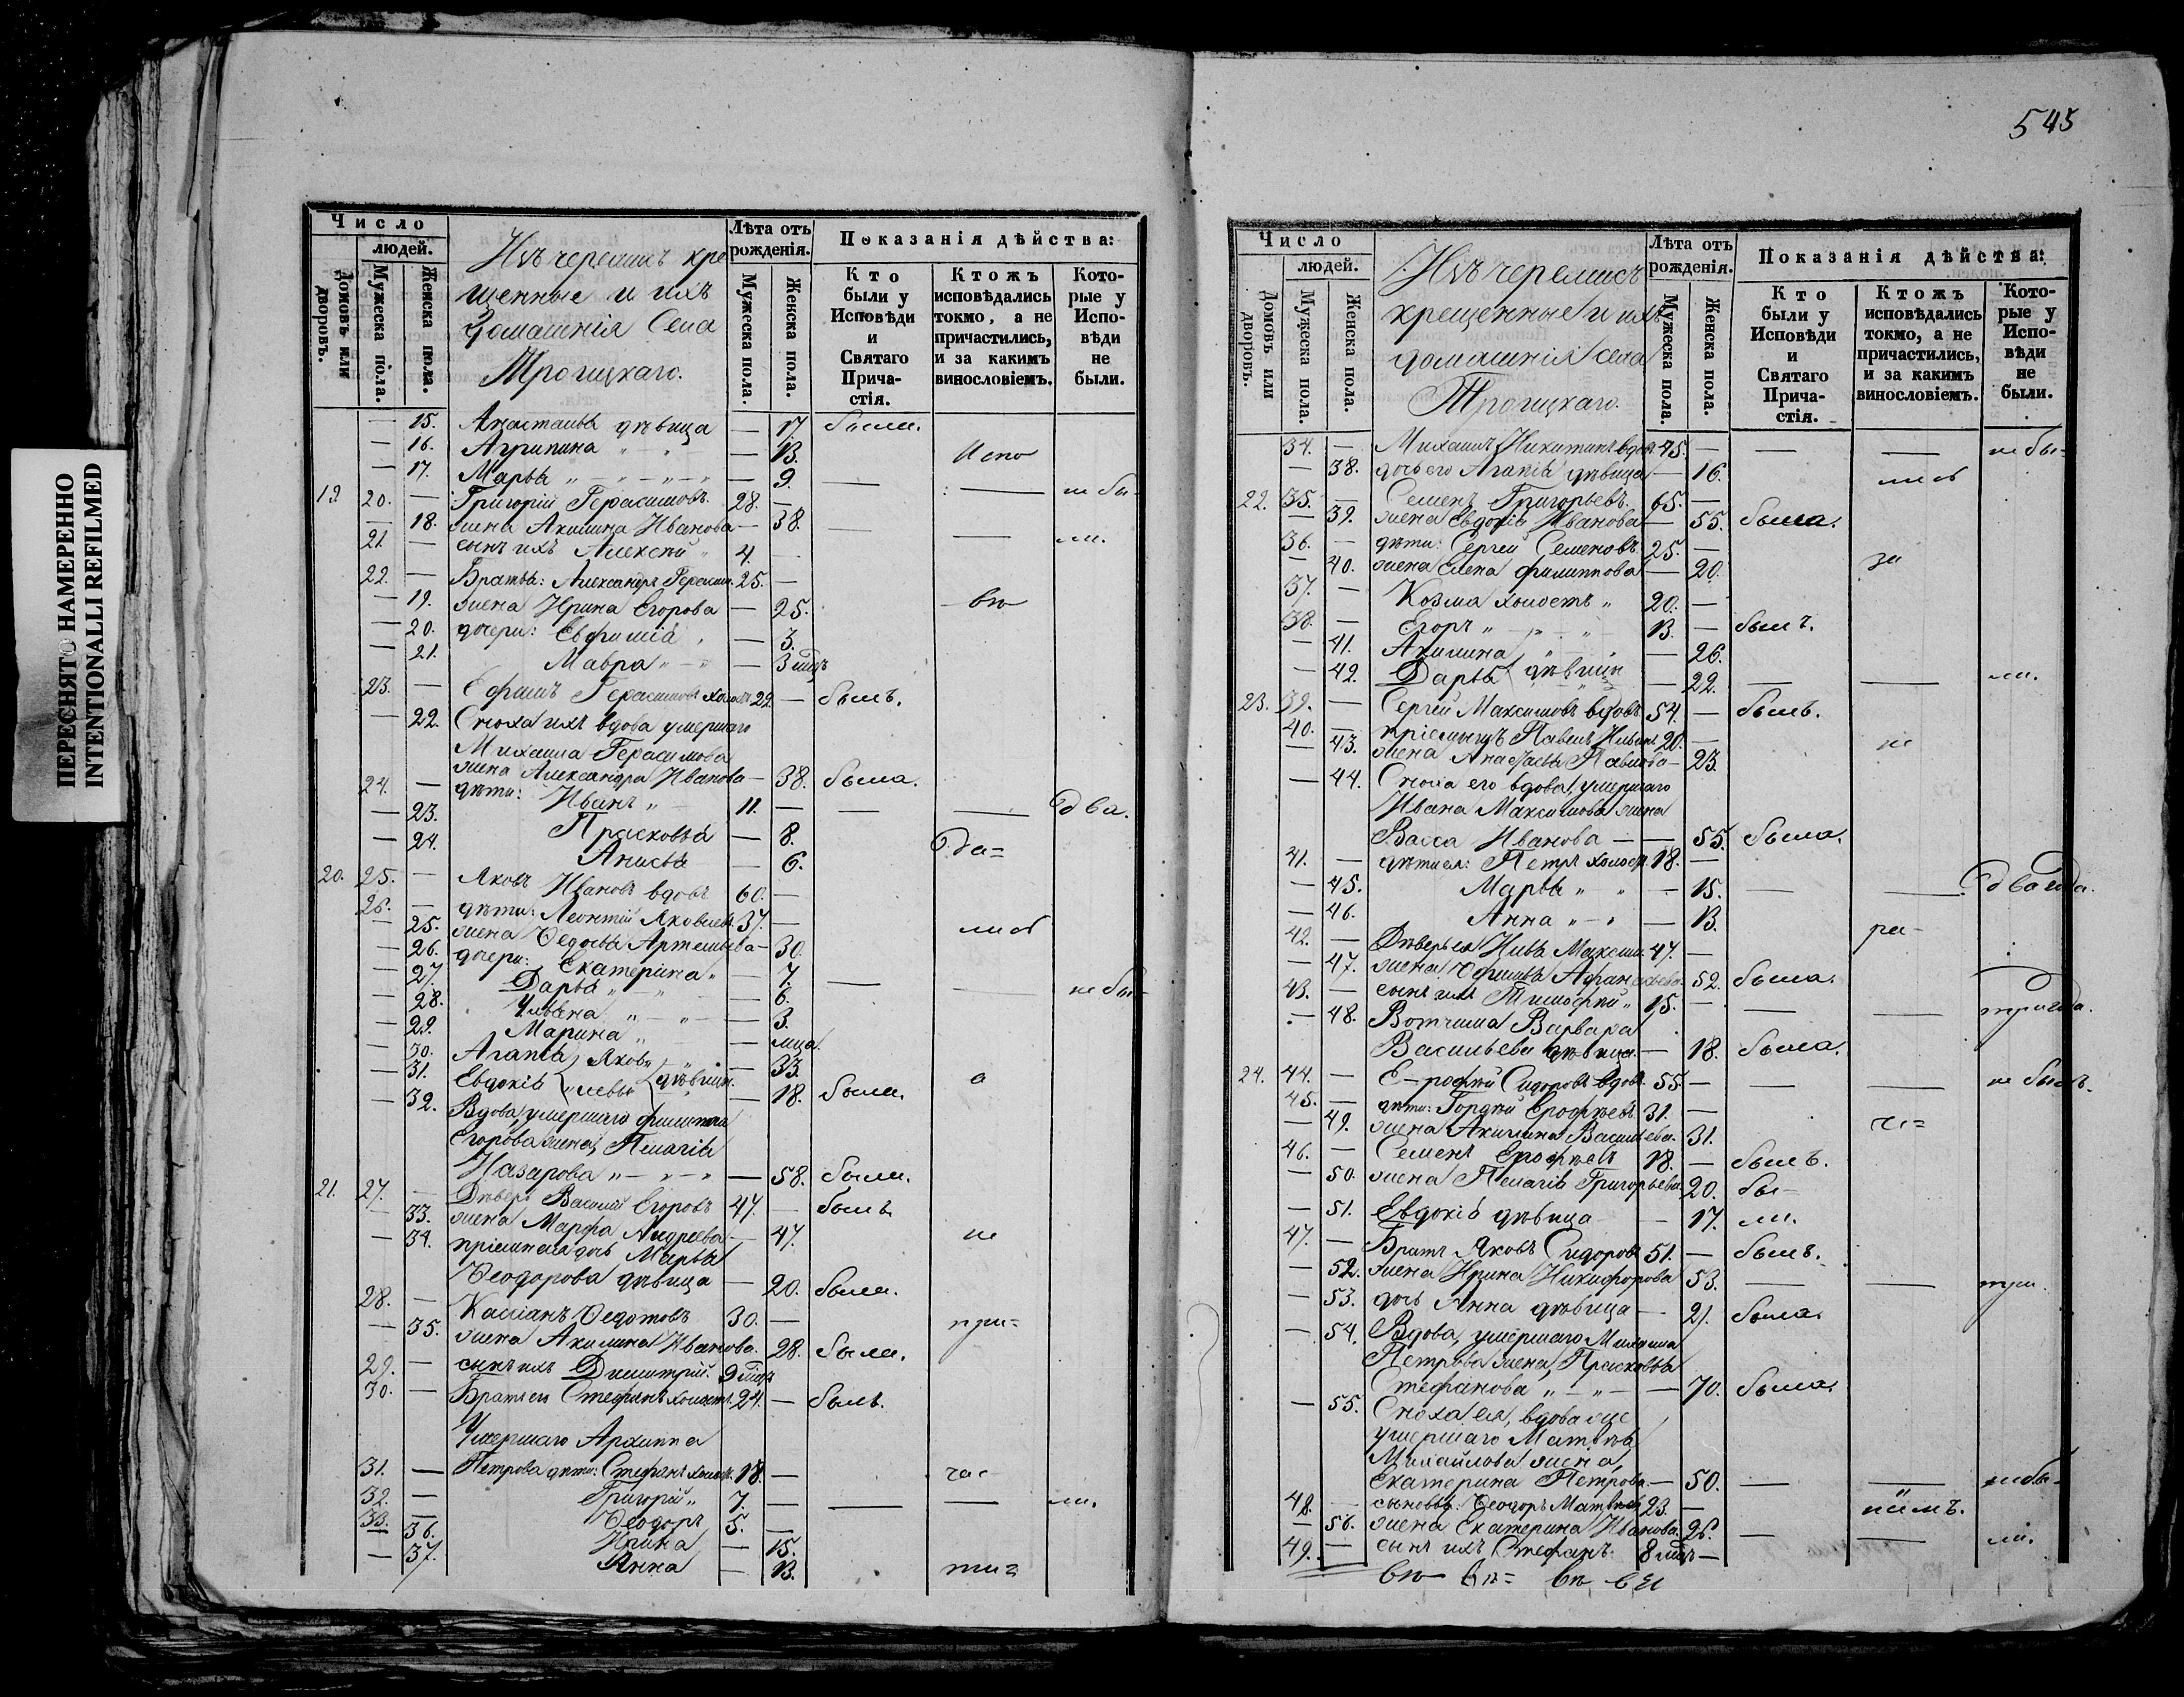 545
ПЕРЕСНЯТО НАМЕРЕННО
INTENTIONALLI REFILMED
Число
людей.
Домовъ или дворовъ.
Мужеска пола.
Женска пола.
Изъ черемисъ кре
щенные и ихъ
домашнія Села
Троицкаго.
Лѣта отъ рожденія.
Мужеска пола.
Женска пола.
Показанія дѣйства:
Кто были у Исповѣди и Святаго Причастія.
Ктожъ исповѣдались токмо, а не причастились, и за какимъ винословіемъ.
Которые у Исповѣди не были.
— 15. Анастасія дѣвица — 17 были.
— 16. Агрипина " — " — 13. Испо
— 17. Марья " — " — " — 9
19 20. — Григорій Герасимовъ. 28. — не бы-
— 18. жена Акилина Иванова — 38.
21. — сынъ ихъ Алексѣй " 4. — ли.
22. — Братья: Александръ Герасим. 25. —
— 19. жена Ирина Егорова — 25. вѣ
— 20. дочери: Евфимія — 3.
— 21. Мавра " — " — 3 мцъ
23. — Ефимъ Герасимовъ холос. 22. — былъ.
— 22. Сноха ихъ вдова умершаго
Михаила Герасимова
жена Александра Иванова — 38. была.
24. — дѣти: Иванъ " 11. — два.
— 23. Прасковья — 8.
— 24. Анисья — 6.
20. 25. — Яковъ Ивановъ вдовъ 60. —
26. — дѣти: Леонтій Яковлевъ 37. —
— 25. жена Ѳедосья Артемьева — 30.
— 26. дочери: Екатерина " — 7.
— 27. Дарья " — " — 6. не бы-
— 28. Ульяна " — " — 3.
— 29. Марина " — мца.
— 30. Агапія Яков — 33.
— 31. Евдокія левы дѣвицы. — 18. были.
— 32. Вдова, умершаго Филиппа
Егорова жена, Пелагія
Назарова " — " — " — 58. была.
21. 27. — Деверь Василій Егоровъ 47. — былъ
— 33. жена Марфа Андреева — 47. не
— 34. пріемная дочь Марья
Ѳеодорова дѣвица — 20. была.
28. — Кассіанъ Ѳедотовъ 30. — при=
— 35. жена Акилина Иванова. 28. были.
29. — сынъ ихъ Димитрій. 9 мцъ
30. — Братъ ея Стефанъ холост. 24. — былъ.
Умершаго Архиппа
31. — Петрова дѣти: Стефанъ холост. 18. — час
32. — Григорій " 7. — ли.
33. — Ѳеодоръ 5. —
— 36. Ирина — 15.
— 37. Анна — 13. ти=
Число
людей.
Домовъ или дворовъ.
Мужеска пола.
Женска пола.
Изъ черемисъ
крещенные и ихъ
домашнія села
Троицкаго.
Лѣта отъ рожденія.
Мужеска пола.
Женска пола.
Показанія дѣйства:
Кто были у Исповѣди и Святаго Причастія.
Ктожъ исповѣдались токмо, а не причастились, и за какимъ винословіемъ.
Которые у Исповѣди не были.
34. — Михаилъ Никитинъ вдов. 45. — не бы-
— 38. дочь его Агапія дѣвица — 16.
22. 35. — Семенъ Григорьевъ. 65. —
— 39. жена Евдокія Иванова — 55. была.
36. — дѣти: Сергей Семеновъ. 25. —
— 40. жена Елена Филиппова — 20. за
37. — Козма холостъ " 20. —
38. — Егоръ " — " — " 13. — былъ.
— 41. Акилина — 26.
— 42. Дарья дѣвицы — 22. ли.
23. 39. — Сергей Максимовъ вдовъ 54. — былъ.
40. — пріемышъ Павелъ 20. —
— 43. жена Анастасья Павлова — 23. не
— 44. Сноха его вдова, умершаго
Ивана Максимова жена
Васса Иванова — 55. была.
41. — дѣти ея: Петръ холост. 18. —
— 45. Марья " " — 15. два года.
— 46. Анна " — " — 13.
42. — Деверь ея Илья Максим. 47. — ра-
— 47. жена Ефимья Афанасьева. 52. была.
43. — сынъ ихъ Тимофей " 15. — три года.
— 48. Вотчима Варвара
Васильева дѣвица. — 18. была.
24. 44. — Ерофей Сидоровъ вдов. 55. — не былъ.
45. — дѣти: Гордѣй Ерофѣевъ 31. —
— 49. жена Акилина Васильева. 31.
46. — Семенъ Ерофѣевъ 18. — былъ.
— 50. жена Пелагія Григорьева. 20. бы-
— 51. Евдокія дѣвица — 17. ли.
47. — Братъ Яковъ Сидоровъ 51. — былъ.
— 52. жена Ирина Никифорова 53. три
— 53. дочь Анна дѣвица — 21. была
— 54. Вдова, умершаго Михаила
Петрова жена, Прасковья
Стефанова " — " — 70. была.
— 55. Сноха ея, вдова же
умершаго Матвѣя
Михайлова жена,
Екатерина Петрова — 50. не бы-
48. — сыновья: Ѳеодоръ Матвѣев. 23. — ніимъ.
— 56. жена Екатерина Иванова. 26.
49. — сынъ ихъ Стефанъ 8 мцъ — ли.